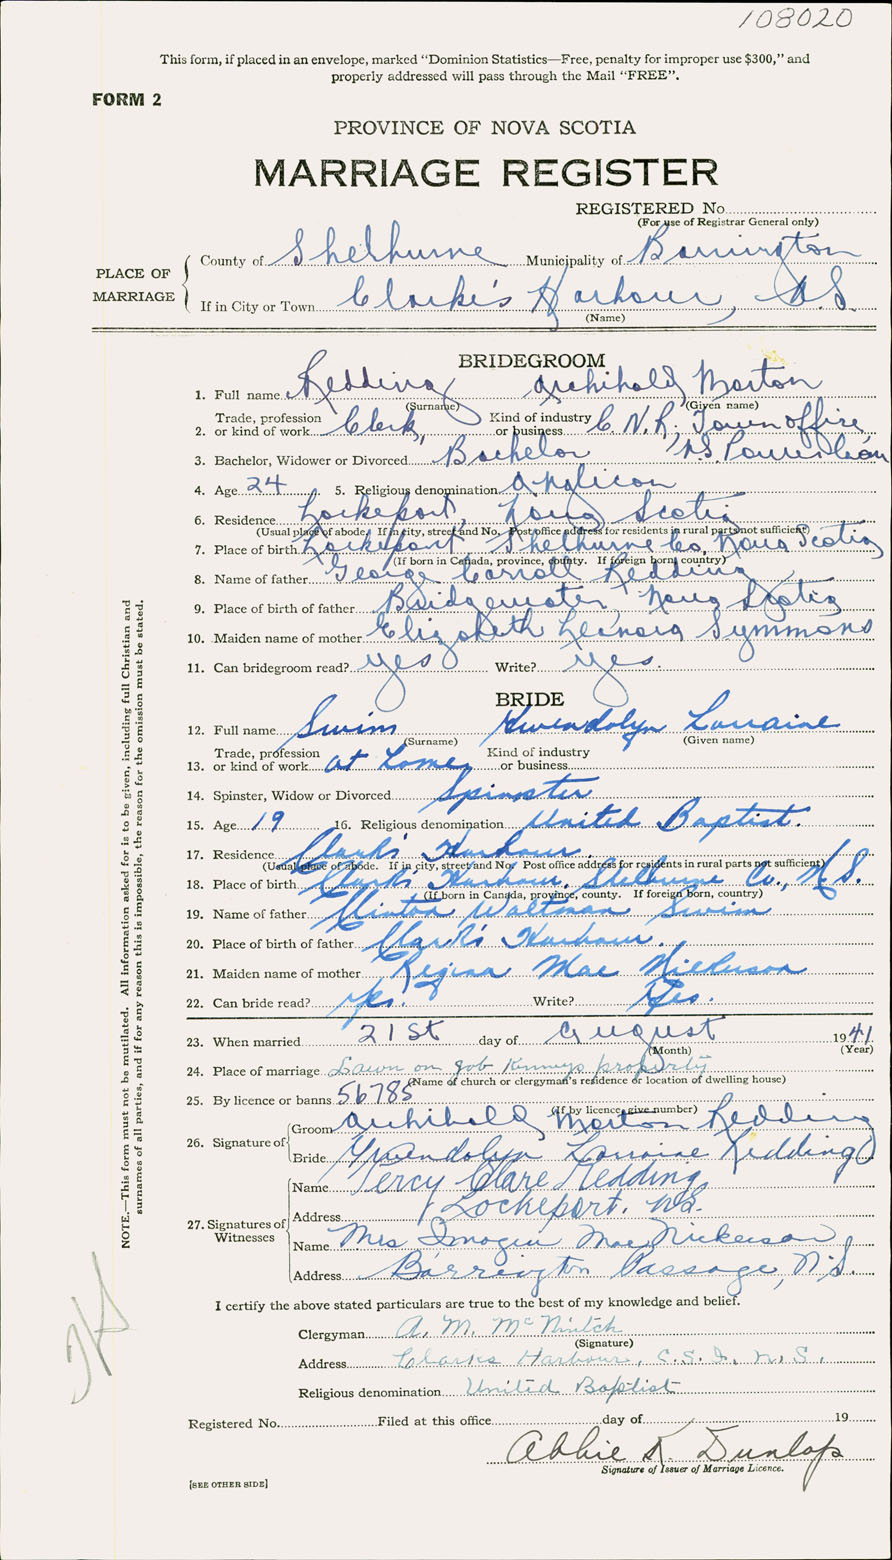 108020
This form, if placed in an envelope, marked “Dominion Statistics—Free, penalty for improper use $300,” and
properly addressed will pass through the Mail “FREE”.
FORM 2
PROVINCE OF NOVA SCOTIA
MARRIAGE REGISTER
REGISTERED No.
(For use of Registrar General only)
PLACE OF MARRIAGE
County of Shelburne Municipality of Barrington
If in City or Town Clarke's Harbour, N.S.
(Name)
BRIDEGROOM
1. Full name Redding Archibald Morton
(Surname) (Given name)
2. Trade, profession or kind of work Clerk, Kind of industry or business C.N.R. Town office,
3. Bachelor, Widower or Divorced Bachelor N.S.
4. Age 24 5. Religious denomination Anglican
6. Residence Lockeport, Nova Scotia
(Usual place of abode. If in city, street and No. Post office address for residents in rural parts not sufficient)
7. Place of birth Lockeport Shelburne Co, Nova Scotia
(If born in Canada, province, county. If foreign born, country)
8. Name of father George Carroll Redding
9. Place of birth of father Bridgewater, Nova Scotia
10. Maiden name of mother Elizabeth Leinora Symmons
11. Can bridegroom read? yes Write? yes.
BRIDE
12. Full name Swim Gwendolyn Lorraine
(Surname) (Given name)
13. Trade, profession or kind of work at home Kind of industry or business
14. Spinster, Widow or Divorced Spinster
15. Age 19 16. Religious denomination United Baptist.
17. Residence Clark's Harbour.
(Usual place of abode. If in city, street and No. Post office address for residents in rural parts not sufficient)
18. Place of birth Clark's Harbour, Shelburne Co., N.S.
(If born in Canada, province, county. If foreign born, country)
19. Name of father Clinton Waltman Swim
20. Place of birth of father Clark's Harbour.
21. Maiden name of mother Regina Mae Nickerson
22. Can bride read? yes. Write? Yes.
23. When married 21st day of August 1941
(Month) (Year)
24. Place of marriage Lawn on Job Kennys property
(Name of church or clergyman's residence or location of dwelling house)
25. By licence or banns 56785
(If by licence, give number)
26. Signature of
Groom Archibald Morton Redding
Bride Gwendolyn Lorraine Redding
27. Signatures of Witnesses
Name Percy Clare Redding
Address Lockeport. N.S.
Name Mrs Imogen Mae Nickerson
Address Barrington Passage, N.S.
I certify the above stated particulars are true to the best of my knowledge and belief.
Clergyman A. M. McNintch
(Signature)
Address Clarks Harbour, C.S.I. N.S.
Religious denomination United Baptist
Registered No. Filed at this office day of 19
Abbie K. Dunlop
Signature of Issuer of Marriage Licence.
[SEE OTHER SIDE]
NOTE.—This form must not be mutilated. All information asked for is to be given, including full Christian and
surnames of all parties, and if for any reason this is impossible, the reason for the omission must be stated.